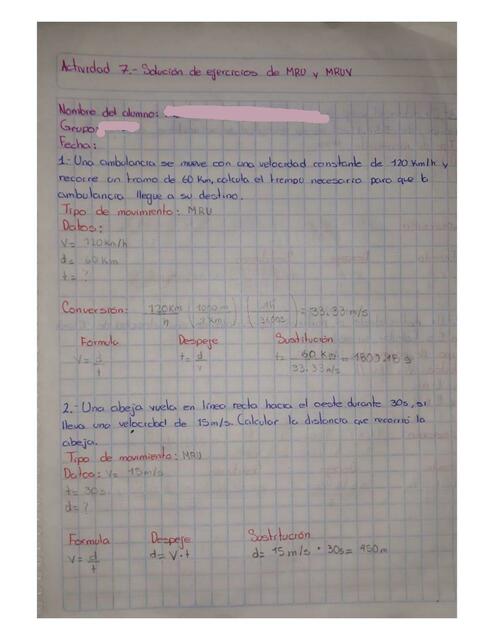 Actividad 7.- Solución de ejercicios de MRU y MRUV
Nombre del alumno:
Grupo:
Fecha:
1.- Una ambulancia se mueve con una velocidad constante de 120 Km/h y
recorre un tramo de 60 Km, calcula el tiempo necesario para que la
ambulancia llegue a su destino.
Tipo de movimiento: MRU
Datos:
V= 120 Km/h
d= 60 Km
t= ?
Conversión: 120 Km/h (1000 m/1 Km) (1h/3600s) = 33.33 m/s
Formula Despeje Sustitución
V= d/t t= d/v t= 60 Km/33.33 m/s =
2.- Una abeja vuela en linea recta hacia el oeste durante 30s, si
lleva una velocidad de 15m/s. Calcular la distancia que recorrió la
abeja.
Tipo de movimiento: MRU
Datos: V= 15m/s
t= 30s
d= ?
Formula Despeje Sustitución
V= d/t d= V·t d= 15 m/s · 30s= 450m